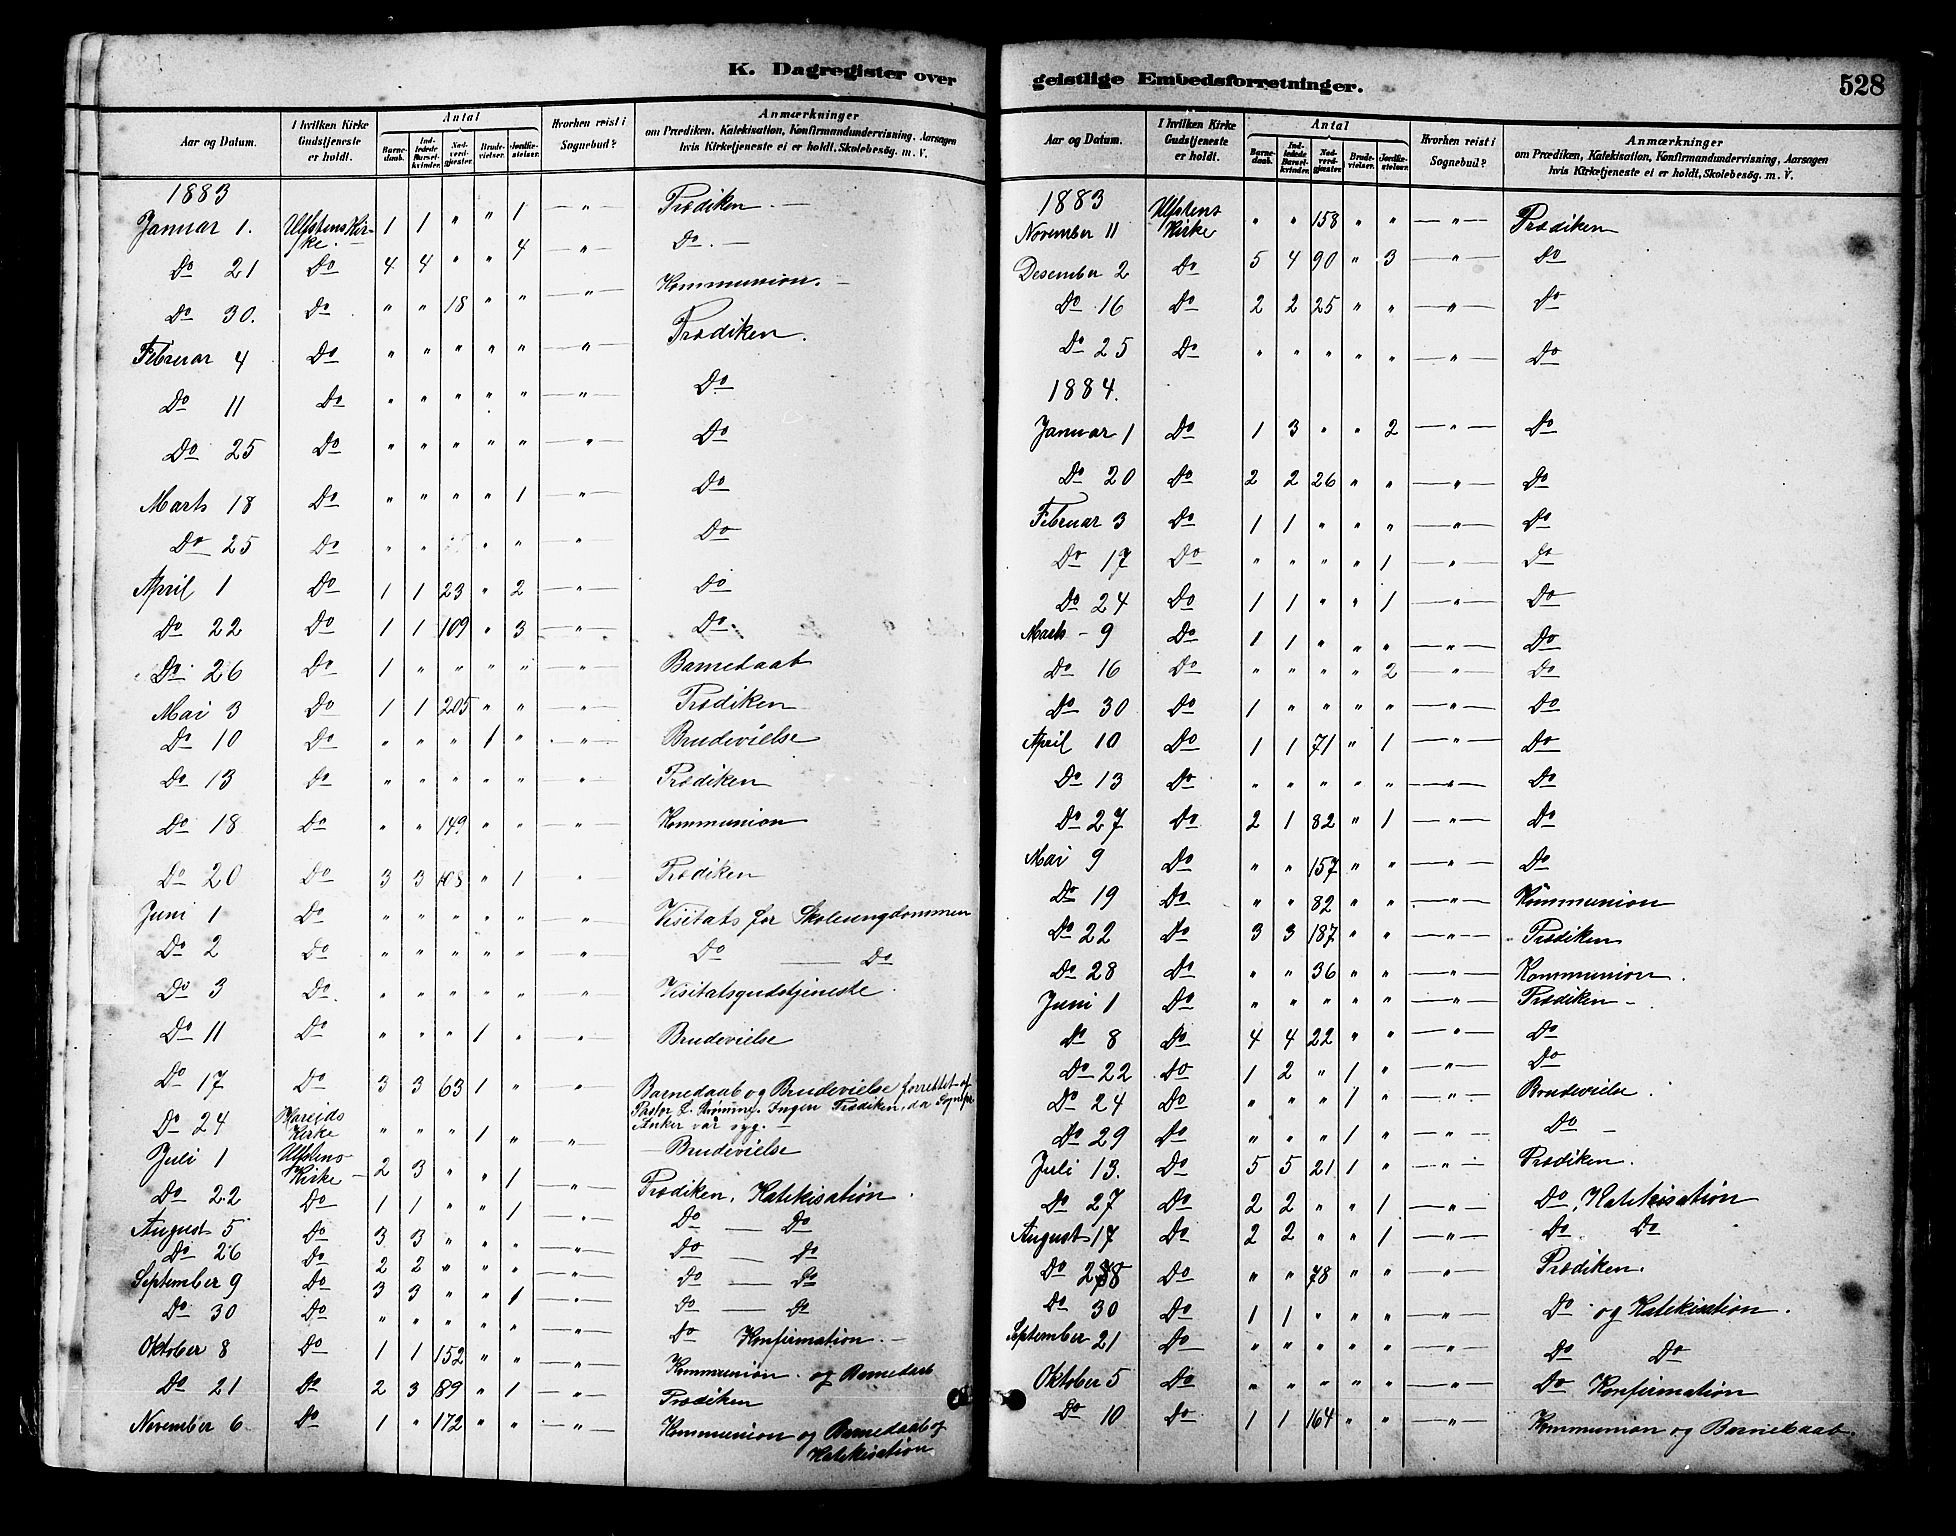 K. Dagregister over
Aar og Datum. | I hvilken Kirke Gudstjeneste er holdt. | Antal | Barnedaab. | Indledede Barselkvinder. | Nadverdgjester. | Brudevielser. | Jordfæstelser. | Hvorhen reist i Sognebud? | Anmærkninger om Prædiken, Katekisation, Konfirmandundervisning, Aarsagen hvis Kirketjeneste ei er holdt, Skolebesøg. m. V.
1883
Januar 1. | Ulfstens Kirke. | 1 | 1 | " | " | 1 | —"— | Prædiken. —
Do 21 | Do | 4 | 4 | " | " | 4 | " | Do. —
Do 30. | Do | " | " | 18 | " | " | —"— | Kommunion. —
Februar 4 | Do | " | " | " | " | " | —"— | Prædiken.
Do 11 | Do | " | " | " | " | " | —"— | Do
Do 25 | Do | " | " | " | " | " | —"— | Do
Marts 18 | Do | " | " | " | " | 1 | —"— | Do
Do 25 | Do | " | " | | " | " | —"— | Do
April 1 | Do | 1 | 1 | 23 | " | 2 | —"— | Do
Do 22 | Do | 1 | 1 | 109 | " | 3 | —"— | Do
Do 26 | Do | 1 | " | " | " | " | —"— | Barnedaab
Mai 3 | Do | 1 | 1 | 205 | " | " | —"— | Prædiken
Do 10 | Do | " | " | " | 1 | " | —"— | Brudevielse
Do 13 | Do | " | " | " | " | " | —"— | Prædiken
Do 18 | Do | " | " | 149 | " | " | —"— | Kommunion
Do 20 | Do | 3 | 3 | 108 | " | 1 | " | Prædiken
Juni 1 | Do | " | " | " | " | " | —"— | Visitats for Skoleungdommen
Do 2 | Do | " | " | " | " | " | —"— | Do — Do
Do 3 | Do. | " | " | " | " | " | —"— | Visitatsgudstjeneste.
Do 11 | Do | " | " | " | 1 | " | —"— | Brudevielse
Do 17 | Do | 3 | 3 | 63 | 1 | " | " | Barnedaab og Brudevielse forrettet af
Ingen Prædiken, da Sognepr
Anker var syg. —
Do 24 | Hareids Kirke | " | " | " | 1 | " | —"— | — Brudevielse
Juli 1 | Ulfstens Kirke | 2 | 3 | " | " | 1 | —"— | Prædiken, Katekisation.
Do 22 | Do | 1 | 1 | " | " | 1 | —"— | Do — Do
August 5 | Do | 3 | 3 | " | " | " | —"— | Do — Do
Do 26 | Do | 2 | 2 | " | " | " | —"— | Do — Do
September 9 | Do | 3 | 3 | " | " | 1 | —"— | Do — Do
Do 30 | Do | " | " | " | " | " | —"— | Do Konfirmation. —
Oktober 8 | Do | 1 | 1 | 152 | " | " | —"— | Kommunion. og Barnedaab
Do 21 | Do | 2 | 3 | 89 | " | 1 | —"— | Prædiken
November 6 | Do | 1 | " | 172 | " | " | —"— | Kommunion og Barnedaab og
Katekisation
geistlige Embedsforretninger.
528
Aar og Datum. | I hvilken Kirke Gudstjeneste er holdt. | Antal | Barnedaab. | Indledede Barselkvinder. | Nadverdgjester. | Brudevielser. | Jordfæstelser. | Hvorhen reist i Sognebud? | Anmærkninger om Prædiken, Katekisation, Konfirmandundervisning, Aarsagen hvis Kirketjeneste ei er holdt, Skolebesøg. m. V.
1883
November 11 | Ulfstens Kirke | " | " | 158 | " | " | —"— | Prædiken
Desember 2 | Do | 5 | 4 | 90 | " | 3 | —"— | Do
Do 16 | Do | 2 | 2 | 25 | " | " | —"— | Do
Do 25 | Do | " | " | " | " | " | —"— | Do
1884.
Januar 1 | Do | 1 | 3 | " | " | 2 | —"— | Do
Do 20 | Do | 2 | 2 | 26 | " | " | —"— | Do
Februar 3 | Do | 1 | 1 | " | " | " | —"— | Do
Do 17 | Do | " | " | " | " | 1 | —"— | Do
Do 24 | Do | 1 | 1 | " | " | 1 | —"— | Do
Marts - 9 | Do | 1 | 1 | " | " | " | —"— | Do
Do 16 | Do | " | " | " | " | 2 | —"— | Do
Do 30 | Do | 1 | " | " | " | " | —"— | Do
April 10 | Do | 1 | 1 | 71 | " | 1 | —"— | Do
Do 13 | Do | " | " | " | " | " | —"— | Do
Do 27 | Do | 2 | 1 | 82 | " | 1 | —"— | Do
Mai 9 | Do | " | " | 157 | " | " | —"— | Do
Do 19 | Do | " | " | 82 | " | " | —"— | Kommunion
Do 22 | Do | 3 | 3 | 187 | " | " | —"— | Prædiken
Do 28 | Do | " | " | 36 | " | " | —"— | Kommunion.
Juni 1 | Do | " | " | " | " | " | —"— | Prædiken —
Do 8 | Do | 4 | 4 | 22 | " | " | —"— | Do
Do 22 | Do | 1 | 2 | " | 1 | " | —"— | Do
Do 24 | Do | " | " | " | 1 | " | —"— | Brudevielse.
Do 29 | Do | " | " | " | 1 | " | —"— | Do —
Juli 13. | Do | 5 | 5 | 21 | 1 | " | —"— | Prædiken.
Do 27 | Do | 2 | 2 | " | " | 1 | —"— | Do, Katekisation
August 17 | Do | 2 | 2 | " | " | 1 | —"— | Do Do
Do 28 | Do | " | " | 78 | " | " | —"— | Prædiken.
Do 30 | Do | 1 | 1 | " | " | " | —"— | Do og Katekisation.
September 21 | Do | " | " | " | " | " | —"— | Do Do
Oktober 5 | Do | " | " | " | " | " | —"— | Do Konfirmation
Do 10 | Do | 1 | 1 | 164 | " | " | —"— | Kommunion og Barnedaab.